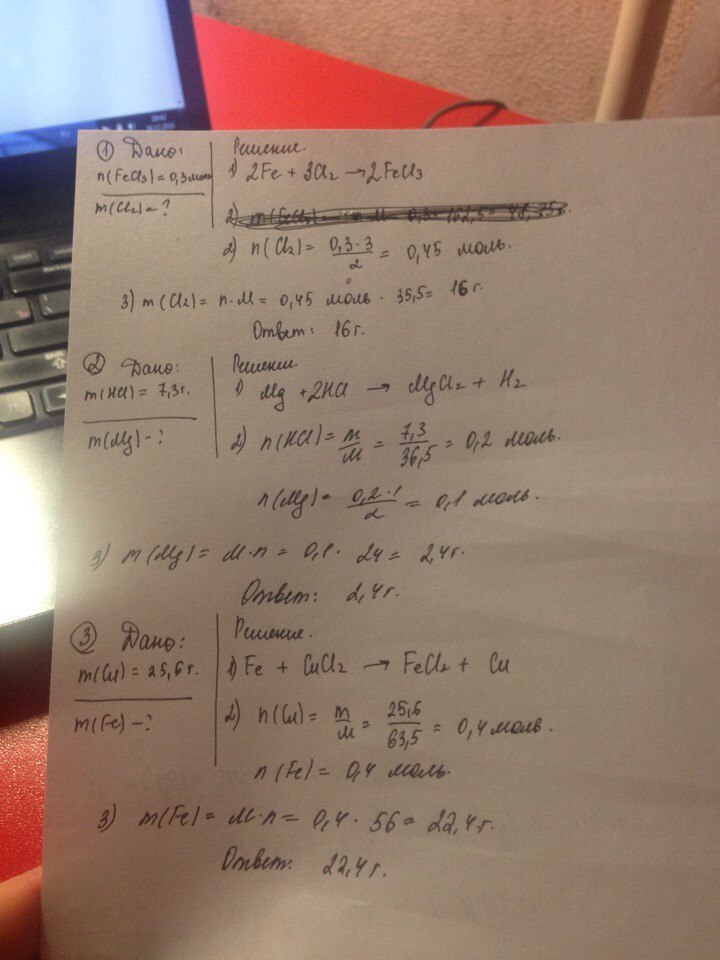 ① Дано:
n(FeCl3)=0,3 моль
m(Cl2)-?
Решение
1) 2Fe + 3Cl2 → 2FeCl3
2) n(Cl2)= 0,3·3/2 = 0,45 моль.
3) m(Cl2)= n·M = 0,45 моль · 35,5= 16г.
Ответ: 16г.
② Дано:
m(HCl)= 7,3г.
m(Mg)-?
Решение
1) Mg + 2HCl → MgCl2 + H2
2) n(HCl)= m/M = 7,3/36,5 = 0,2 моль.
n(Mg)= 0,2·1/2 = 0,1 моль.
3) m(Mg)= M·n = 0,1· 24= 2,4г.
Ответ: 2,4г.
③ Дано:
m(Cu)= 25,6г.
m(Fe)-?
Решение.
1) Fe + CuCl2 → FeCl2 + Cu
2) n(Cu)= m/M = 25,6/63,5 = 0,4 моль.
n(Fe)= 0,4 моль.
3) m(Fe)= M·n= 0,4· 56= 22,4г.
Ответ: 22,4г.